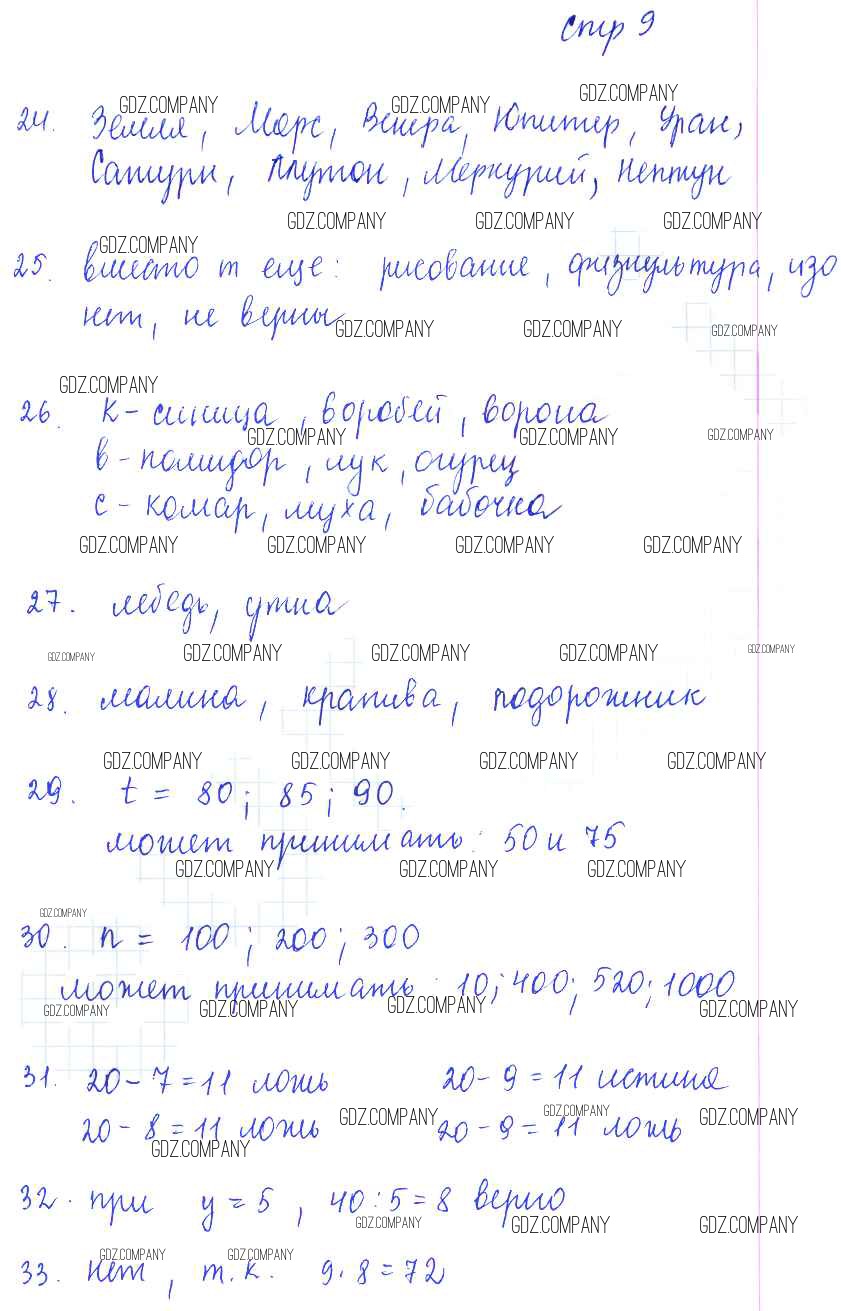 стр 9
GDZ.COMPANY GDZ.COMPANY GDZ.COMPANY
24. Земля, Марс, Венера, Юпитер, Уран,
Сатурн, Плутон, Меркурий, Нептун
GDZ.COMPANY GDZ.COMPANY GDZ.COMPANY
GDZ.COMPANY
25. вместо m еще: рисование, физкультура, изо
нет, не верны
GDZ.COMPANY GDZ.COMPANY GDZ.COMPANY
GDZ.COMPANY
26. к - синица, воробей, ворона
GDZ.COMPANY GDZ.COMPANY GDZ.COMPANY
в - помидор, лук, огурец
с - комар, муха, бабочка
GDZ.COMPANY GDZ.COMPANY GDZ.COMPANY GDZ.COMPANY
27. лебедь, утка
GDZ.COMPANY GDZ.COMPANY GDZ.COMPANY GDZ.COMPANY GDZ.COMPANY
28. малина, крапива, подорожник
GDZ.COMPANY GDZ.COMPANY GDZ.COMPANY GDZ.COMPANY
29. t = 80; 85; 90.
может принимать: 50 и 75
GDZ.COMPANY GDZ.COMPANY GDZ.COMPANY
GDZ.COMPANY
30. n = 100; 200; 300
может принимать: 10; 400; 520; 1000
GDZ.COMPANY GDZ.COMPANY GDZ.COMPANY GDZ.COMPANY
31. 20 - 7 = 11 ложь 20 - 9 = 11 истина
GDZ.COMPANY GDZ.COMPANY GDZ.COMPANY
20 - 8 = 11 ложь 20 - 9 = 11 ложь
GDZ.COMPANY
32. при y = 5, 40 : 5 = 8 верно
GDZ.COMPANY GDZ.COMPANY GDZ.COMPANY
GDZ.COMPANY GDZ.COMPANY
33. нет, т.к. 9 · 8 = 72